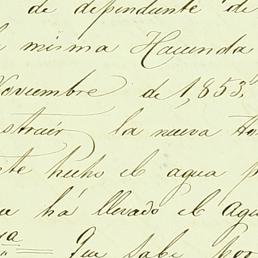 de dependiente de
misma Hacienda
Noviembre de 1,853.
la nueva
hecho el agua
há llevado el Agu
Que sabe por